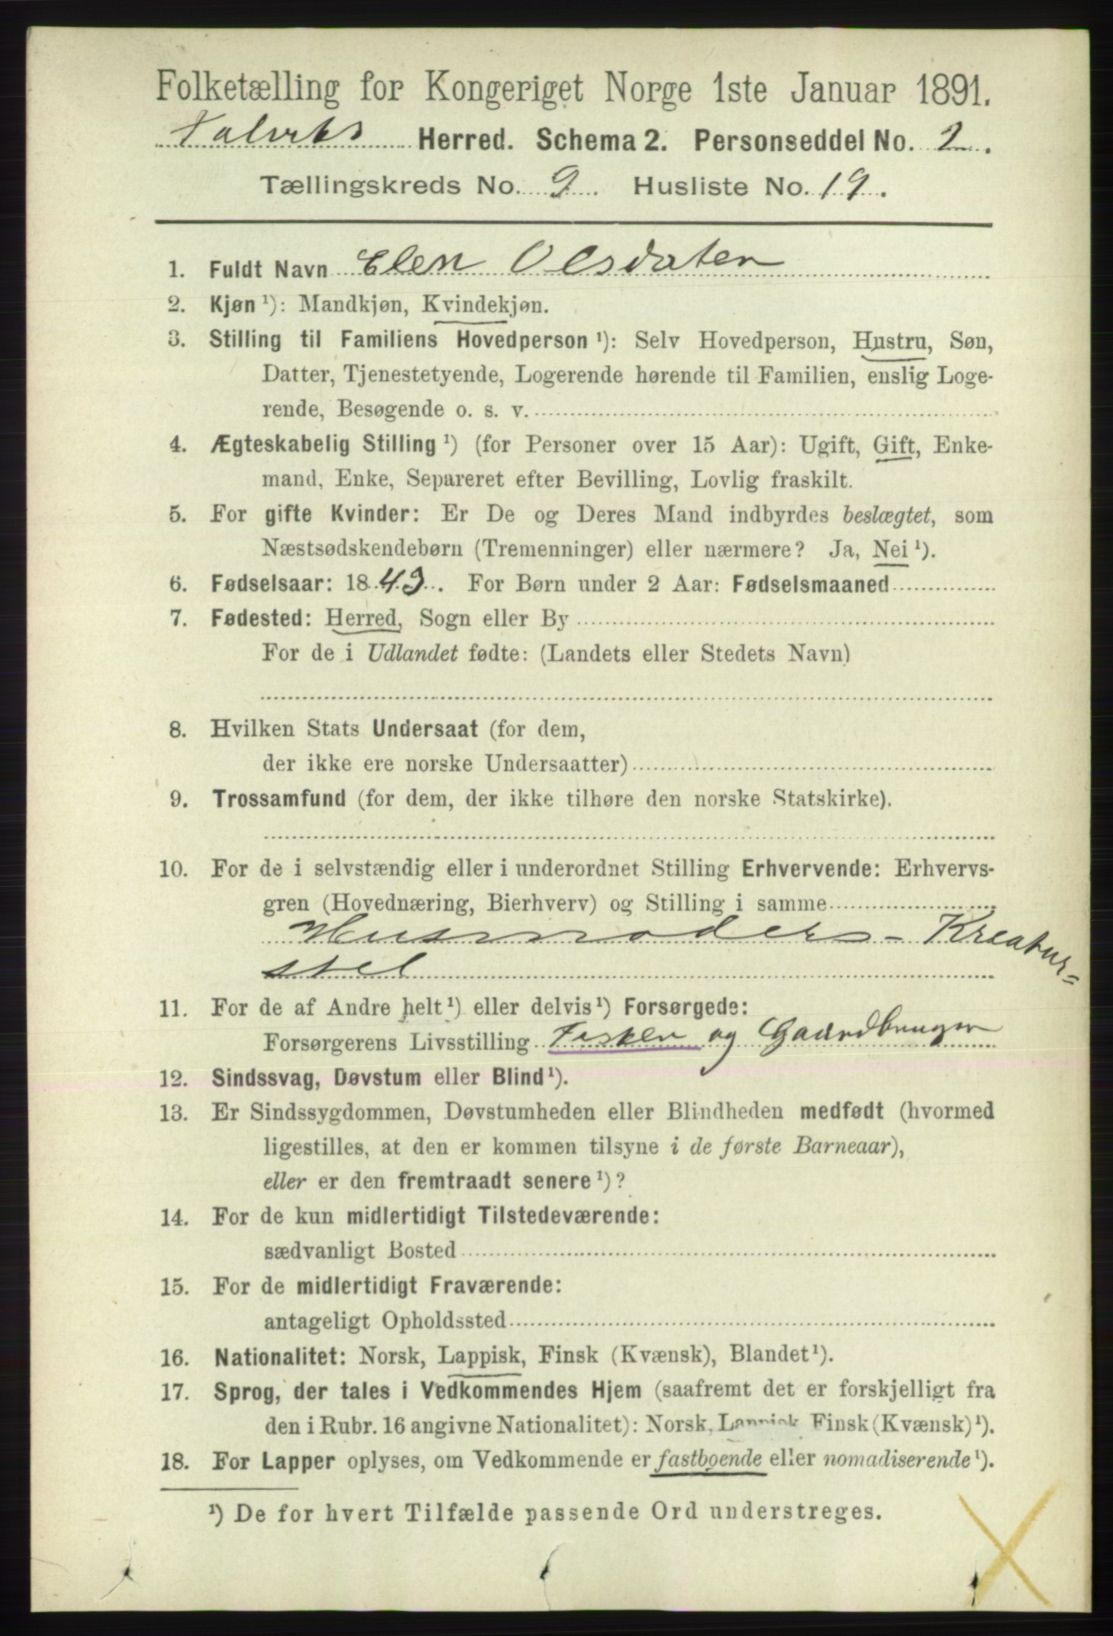 Folketælling for Kongeriget Norge 1ste Januar 1891.
Talviks Herred. Schema 2. Personseddel No. 2.
Tællingskreds No. 9. Husliste No. 19.
1. Fuldt Navn Elen Olsdater
2. Kjøn ¹): Mandkjøn, Kvindekjøn.
3. Stilling til Familiens Hovedperson ¹): Selv Hovedperson, Hustru, Søn,
Datter, Tjenestetyende, Logerende hørende til Familien, enslig Loge-
rende, Besøgende o. s. v.
4. Ægteskabelig Stilling ¹) (for Personer over 15 Aar): Ugift, Gift, Enke-
mand, Enke, Separeret efter Bevilling, Lovlig fraskilt.
5. For gifte Kvinder: Er De og Deres Mand indbyrdes beslægtet, som
Næstsødskendebørn (Tremenninger) eller nærmere? Ja, Nei ¹).
6. Fødselsaar: 1843. For Børn under 2 Aar: Fødselsmaaned
7. Fødested: Herred, Sogn eller By
For de i Udlandet fødte: (Landets eller Stedets Navn)
8. Hvilken Stats Undersaat (for dem,
der ikke ere norske Undersaatter)
9. Trossamfund (for dem, der ikke tilhøre den norske Statskirke).
10. For de i selvstændig eller i underordnet Stilling Erhvervende: Erhvervs-
gren (Hovednæring, Bierhverv) og Stilling i samme
Husmoders - Kreatur-
stel
11. For de af Andre helt ¹) eller delvis ¹) Forsørgede:
Forsørgerens Livsstilling Fisker og Gaardbruger
12. Sindssvag, Døvstum eller Blind ¹).
13. Er Sindssygdommen, Døvstumheden eller Blindheden medfødt (hvormed
ligestilles, at den er kommen tilsyne i de første Barneaar),
eller er den fremtraadt senere ¹)?
14. For de kun midlertidigt Tilstedeværende:
sædvanligt Bosted
15. For de midlertidigt Fraværende:
antageligt Opholdssted
16. Nationalitet: Norsk, Lappisk, Finsk (Kvænsk), Blandet ¹).
17. Sprog, der tales i Vedkommendes Hjem (saafremt det er forskjelligt fra
den i Rubr. 16 angivne Nationalitet): Norsk, Lappisk Finsk (Kvænsk) ¹).
18. For Lapper oplyses, om Vedkommende er fastboende eller nomadiserende ¹).
¹) De for hvert Tilfælde passende Ord understreges.